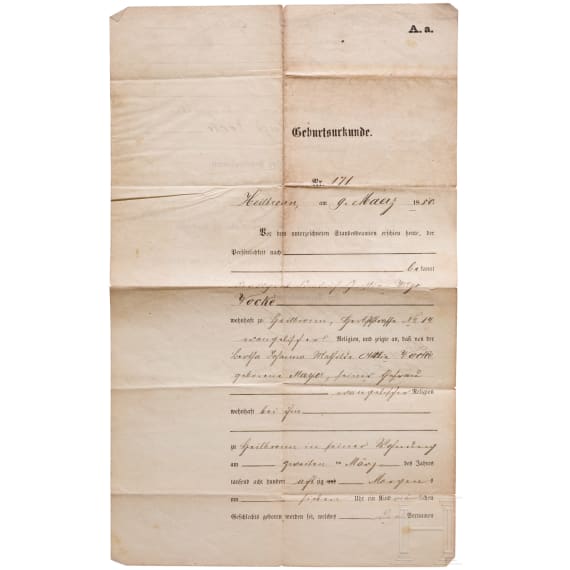 A. a.
Geburtsurkunde.
Nr. 171
Heilbronn, am 9. März 1880
Vor dem unterzeichneten Standesbeamten erschien heute, der
Persönlichkeit nach
bekannt
Yocke
wohnhaft zu Heilbronn, No 14
evangelischer Religion, und zeigte an, daß von der
Bertha Johanna Mathilde Yocke
geborene Mayer, seiner Ehefrau
evangelischer Religion
wohnhaft bei ihm
zu Heilbronn in seiner Wohnung
am zweiten ten März des Jahres
tausend acht hundert achtzig Morgens
um sieben Uhr ein Kind männlichen
Geschlechts geboren worden sei, welches Vornamen